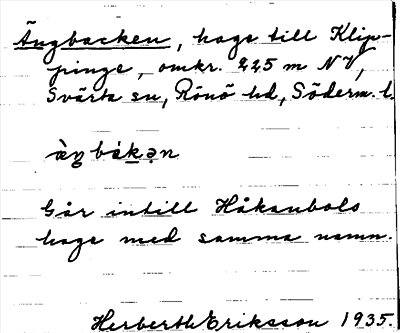 Ängbacken, hage till Klip-
pinge, omkr. 225 m NV,
Svärta sn, Rönö hd, Söderm. l.
Går intill Håkanbols
hage med samma namn.
Herberth Eriksson 1935.